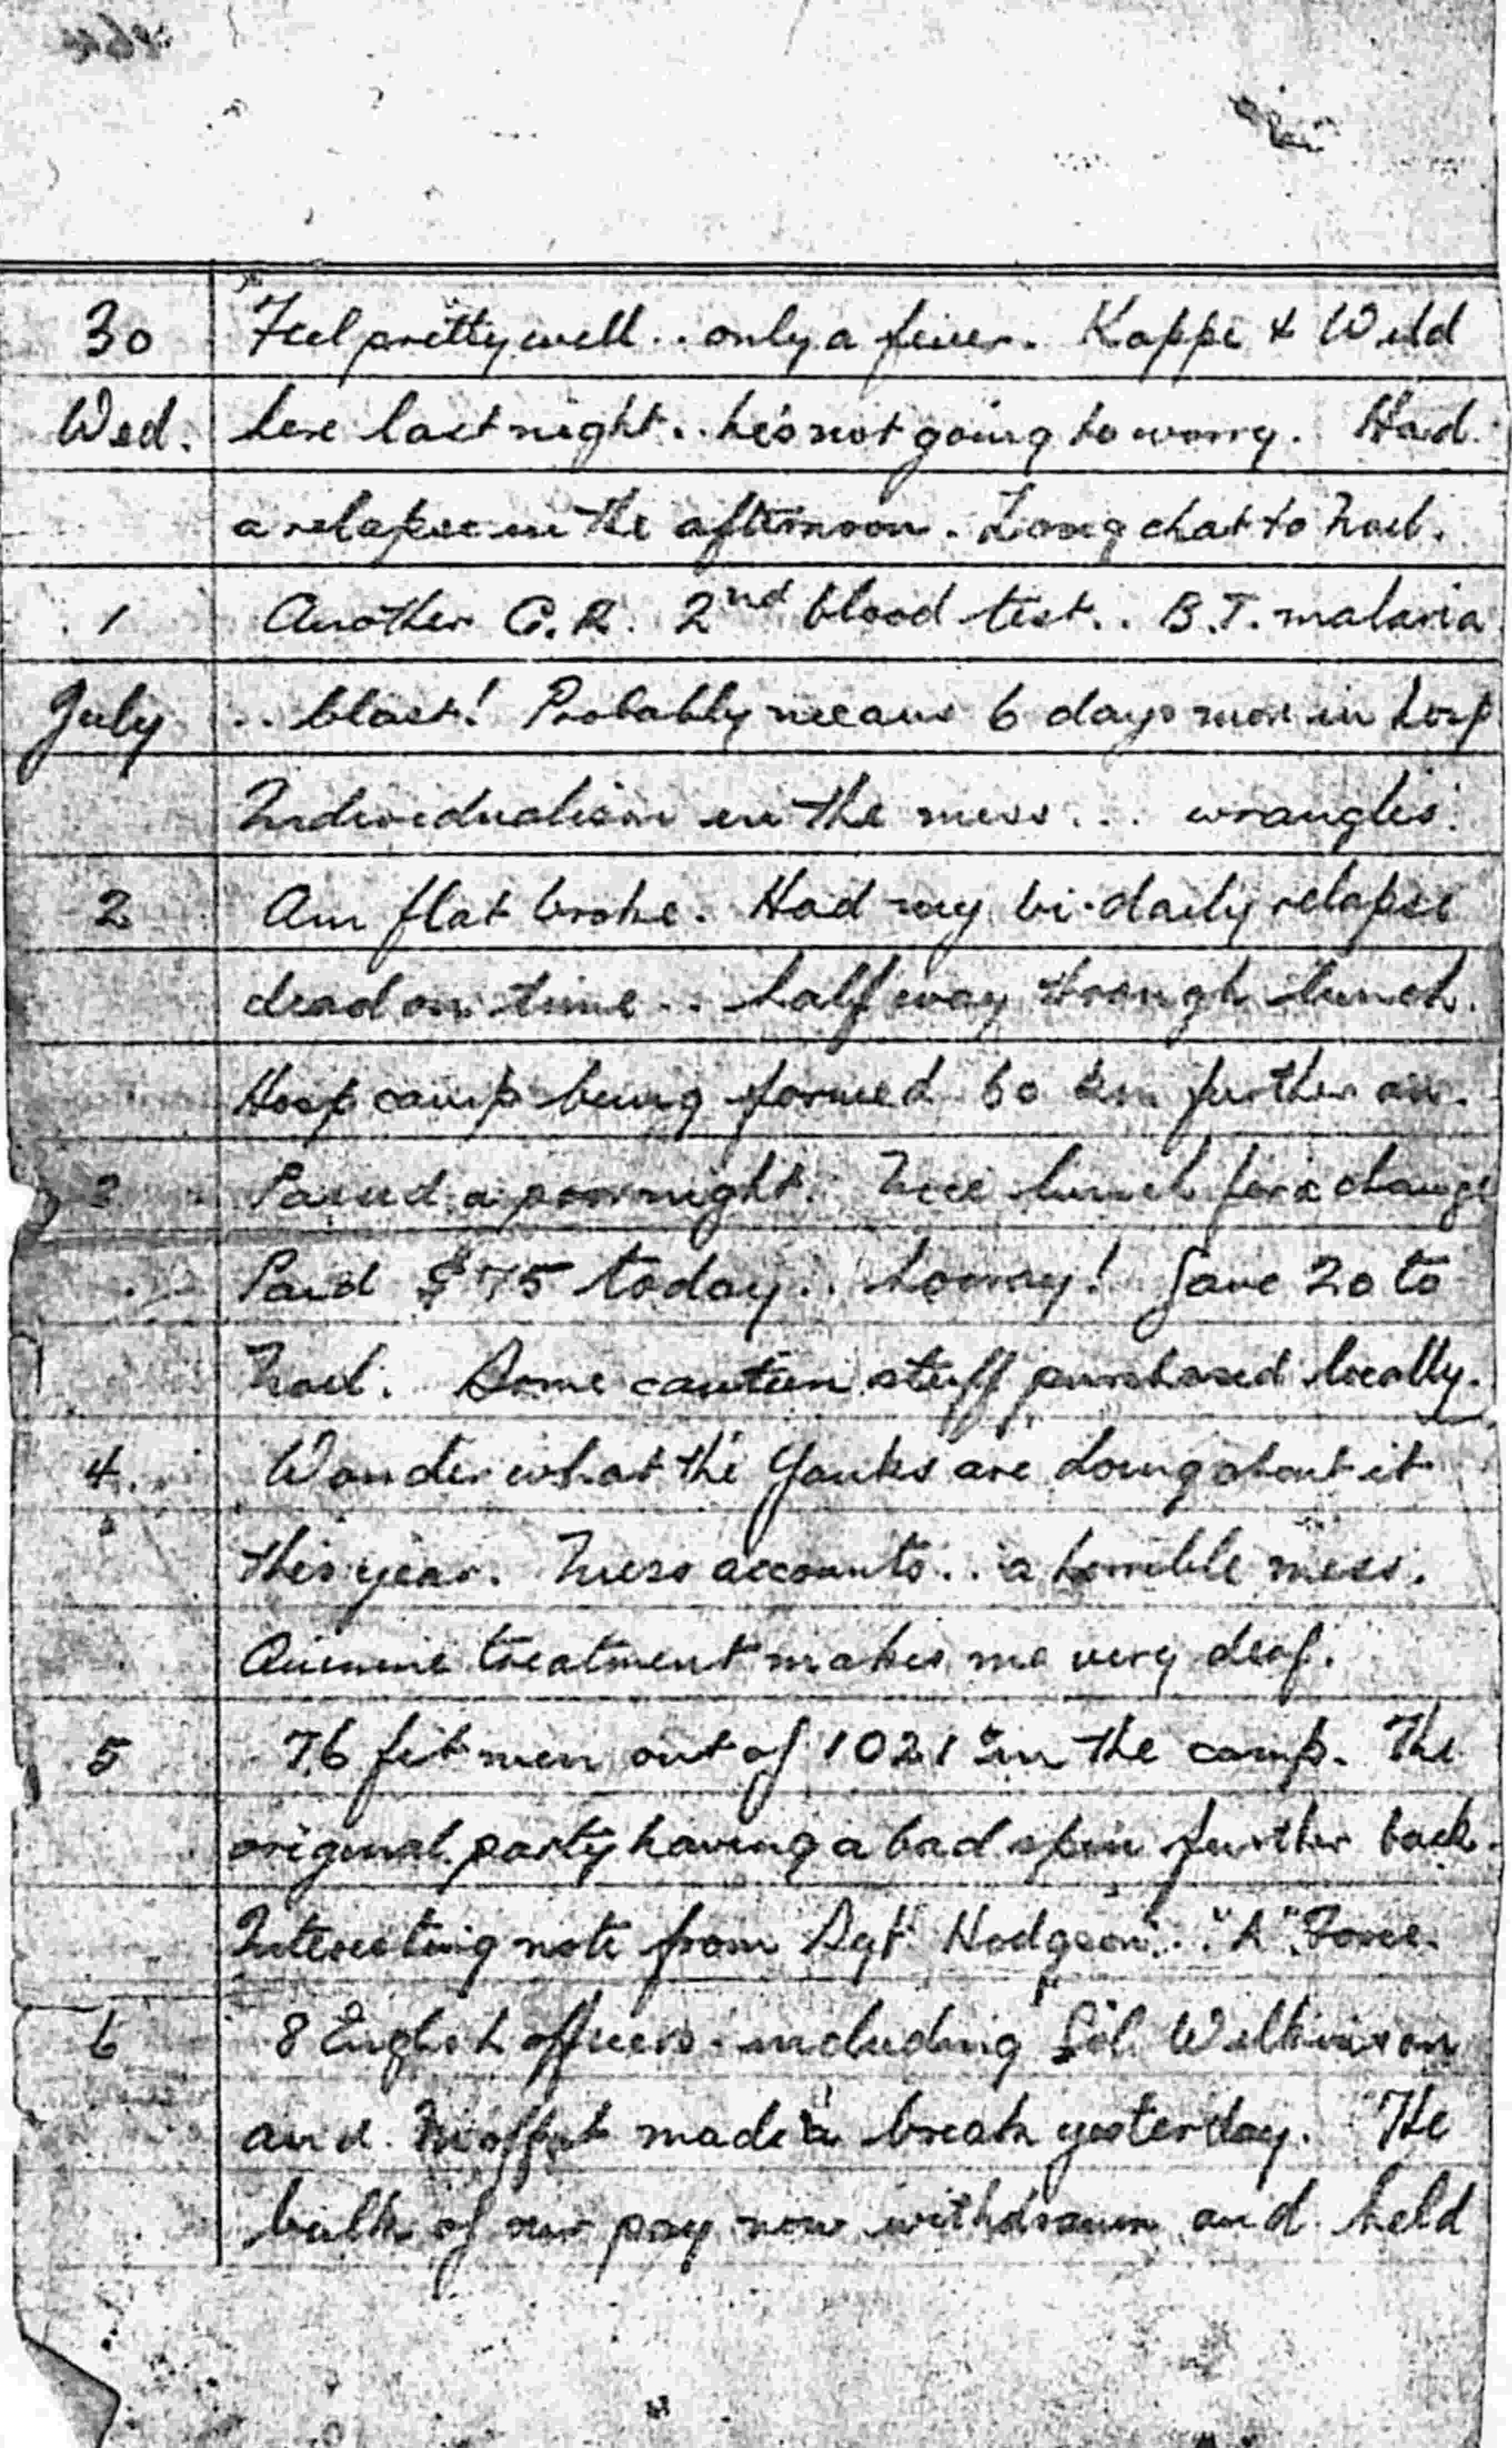 30 Feel pretty well .. only a fever. Kappe & Wild
Wed. here last night .. he's not going to worry. Had
a relapse in the afternoon. Long chat to Noel.
1 Another C.R. 2nd blood test .. B.T. malaria
July .. blast! Probably means 6 days more in hosp
Individualism in the mess ... wrangles.
2 Am flat broke. Had my bi-daily relapse
dead on time .. half way through lunch.
Hosp camp being formed 60 km further on.
3 Passed a poor night. Nice lunch for a change
Paid $75 today .. hooray! Gave 20 to
Noel. Some canteen stuff purchased locally.
4. Wonder what the Yanks are doing about it
this year. Mess accounts .. a horrible mess.
Quinine treatment makes me very deaf.
5 76 fit men out of 1021 in the camp. The
original party having a bad spin further back.
Interesting note from Sgt Hodgson .. "A" Force.
6 8 English officers including Col. Wilkinson
and Moffat made a break yesterday. The
bulk of our pay now withdrawn and held